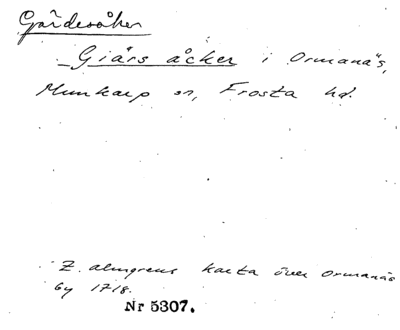 Gärdesåker
Giärs åcker i Ormanäs,
Munkarp sn, Frosta hd.
Z. Almgrens karta över Ormanäs
by 1718.
Nr 5307.